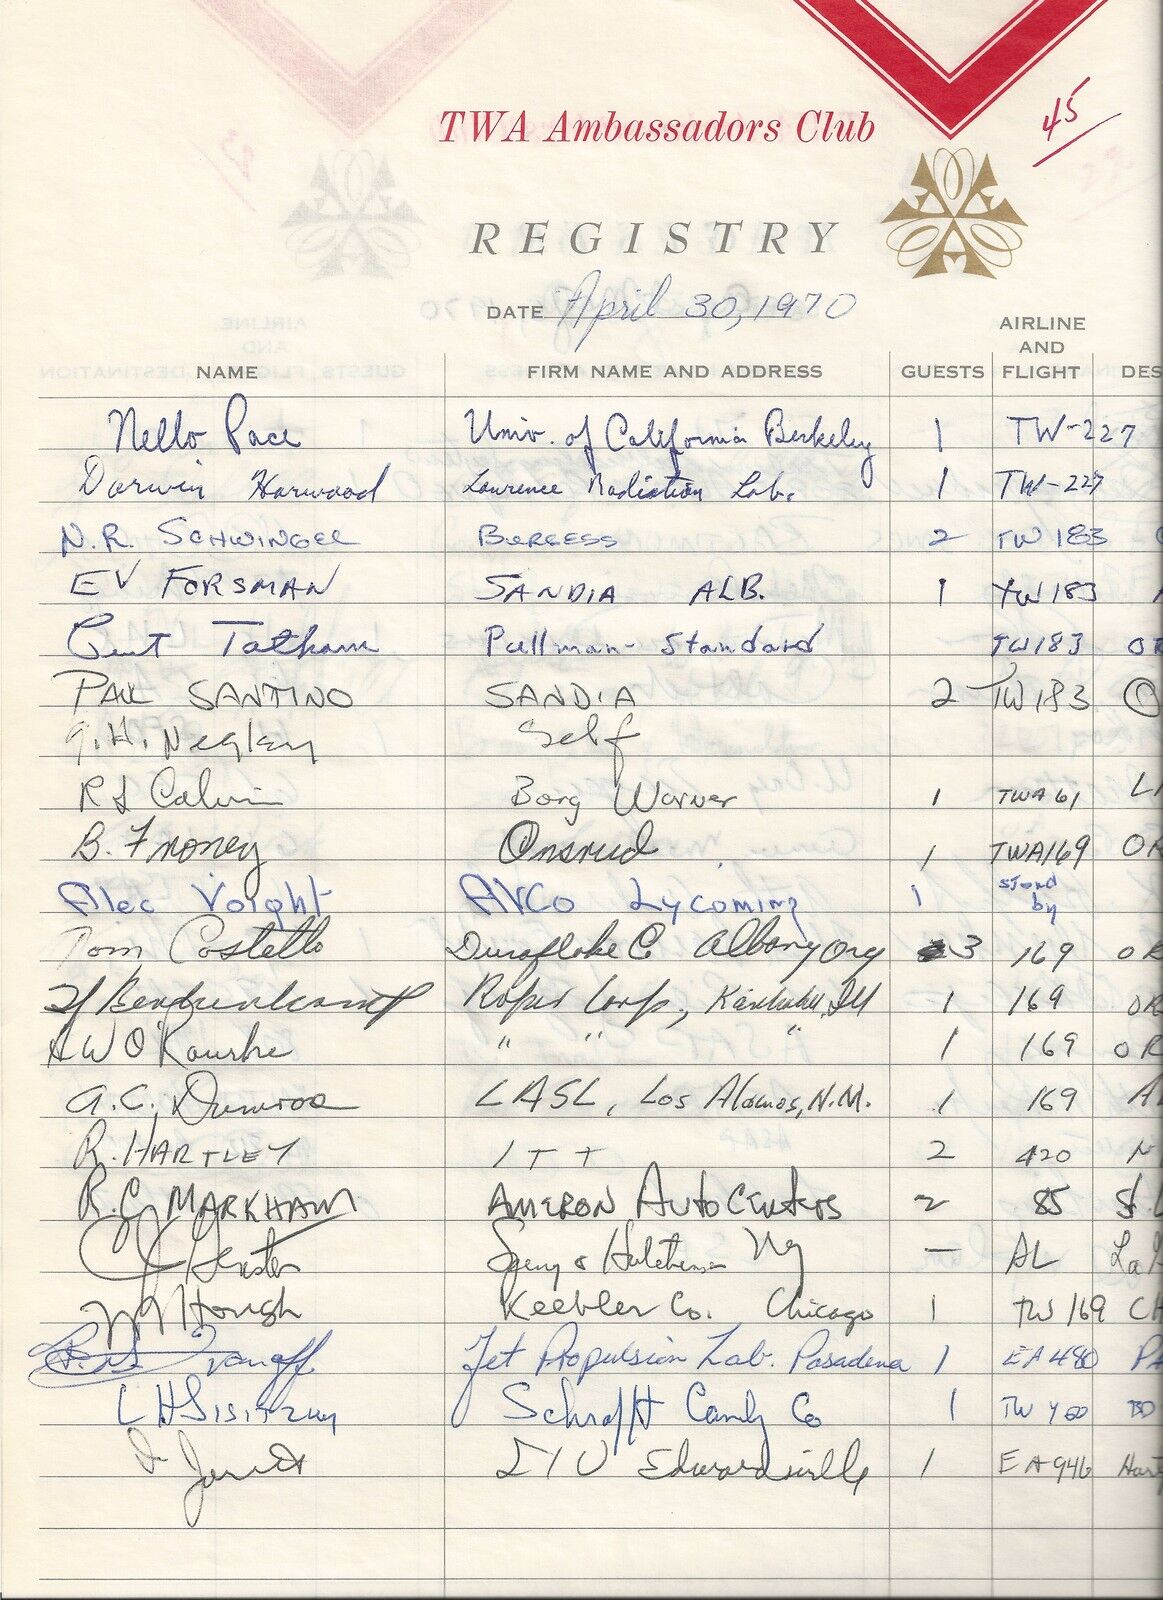 TWA Ambassadors Club
45
REGISTRY
DATE April 30, 1970
NAME FIRM NAME AND ADDRESS GUESTS AIRLINE AND FLIGHT DES
Nello Pace Univ. of California Berkeley 1 TW-227
Darwin Harwood Lawrence Radiation Lab. 1 TW-227
N.R. SCHWINGEL BURGESS 2 TW 183
EV FORSMAN SANDIA ALB. 1 TW 183
Tatham Pullman-Standard - TW183 OR
PAUL SANTINO SANDIA 2 TW 183 O
G.H. Negley Self
R L Calvin Borg Warner 1 TWA 61 LA
B. Onsrud 1 TWA169 OR
Alec Voight AVCO Lycoming 1 stand by
Tom Costello Duraflake C Albany Org 3 169 OR
Roper Corp., Kankakee, Ill 1 169 OR
A W O'Rourke " " " 1 169 OR
A.C. LASL, Los Alamos, N.M. 1 169 A
R. HARTLEY ITT 2 420 N
R.C. MARKHAM AMERON AUTO CENTERS 2 85 St. L
Sperry & Hutchinson Ny - AL La
Hough Keebler Co. Chicago 1 TW 169 CH
Ivanoff Jet Propulsion Lab. Pasadena 1 EA 480 PA
L H Schrafft Candy Co 1 TW 400 BO
SIU Edwardsville 1 EA 946 Hart